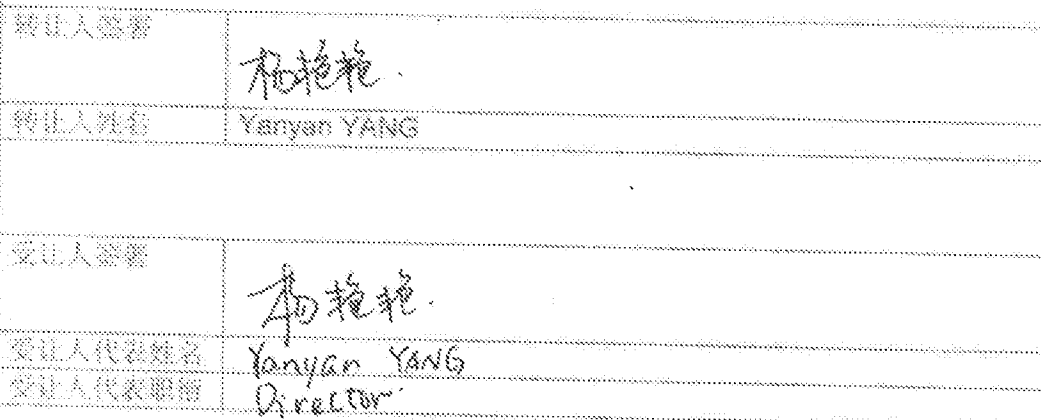 转让人签署
杨艳艳.
转让人姓名
Yanyan YANG
受让人签署
杨艳艳.
受让人代表姓名
Yanyan YANG
受让人代表职衔
Director